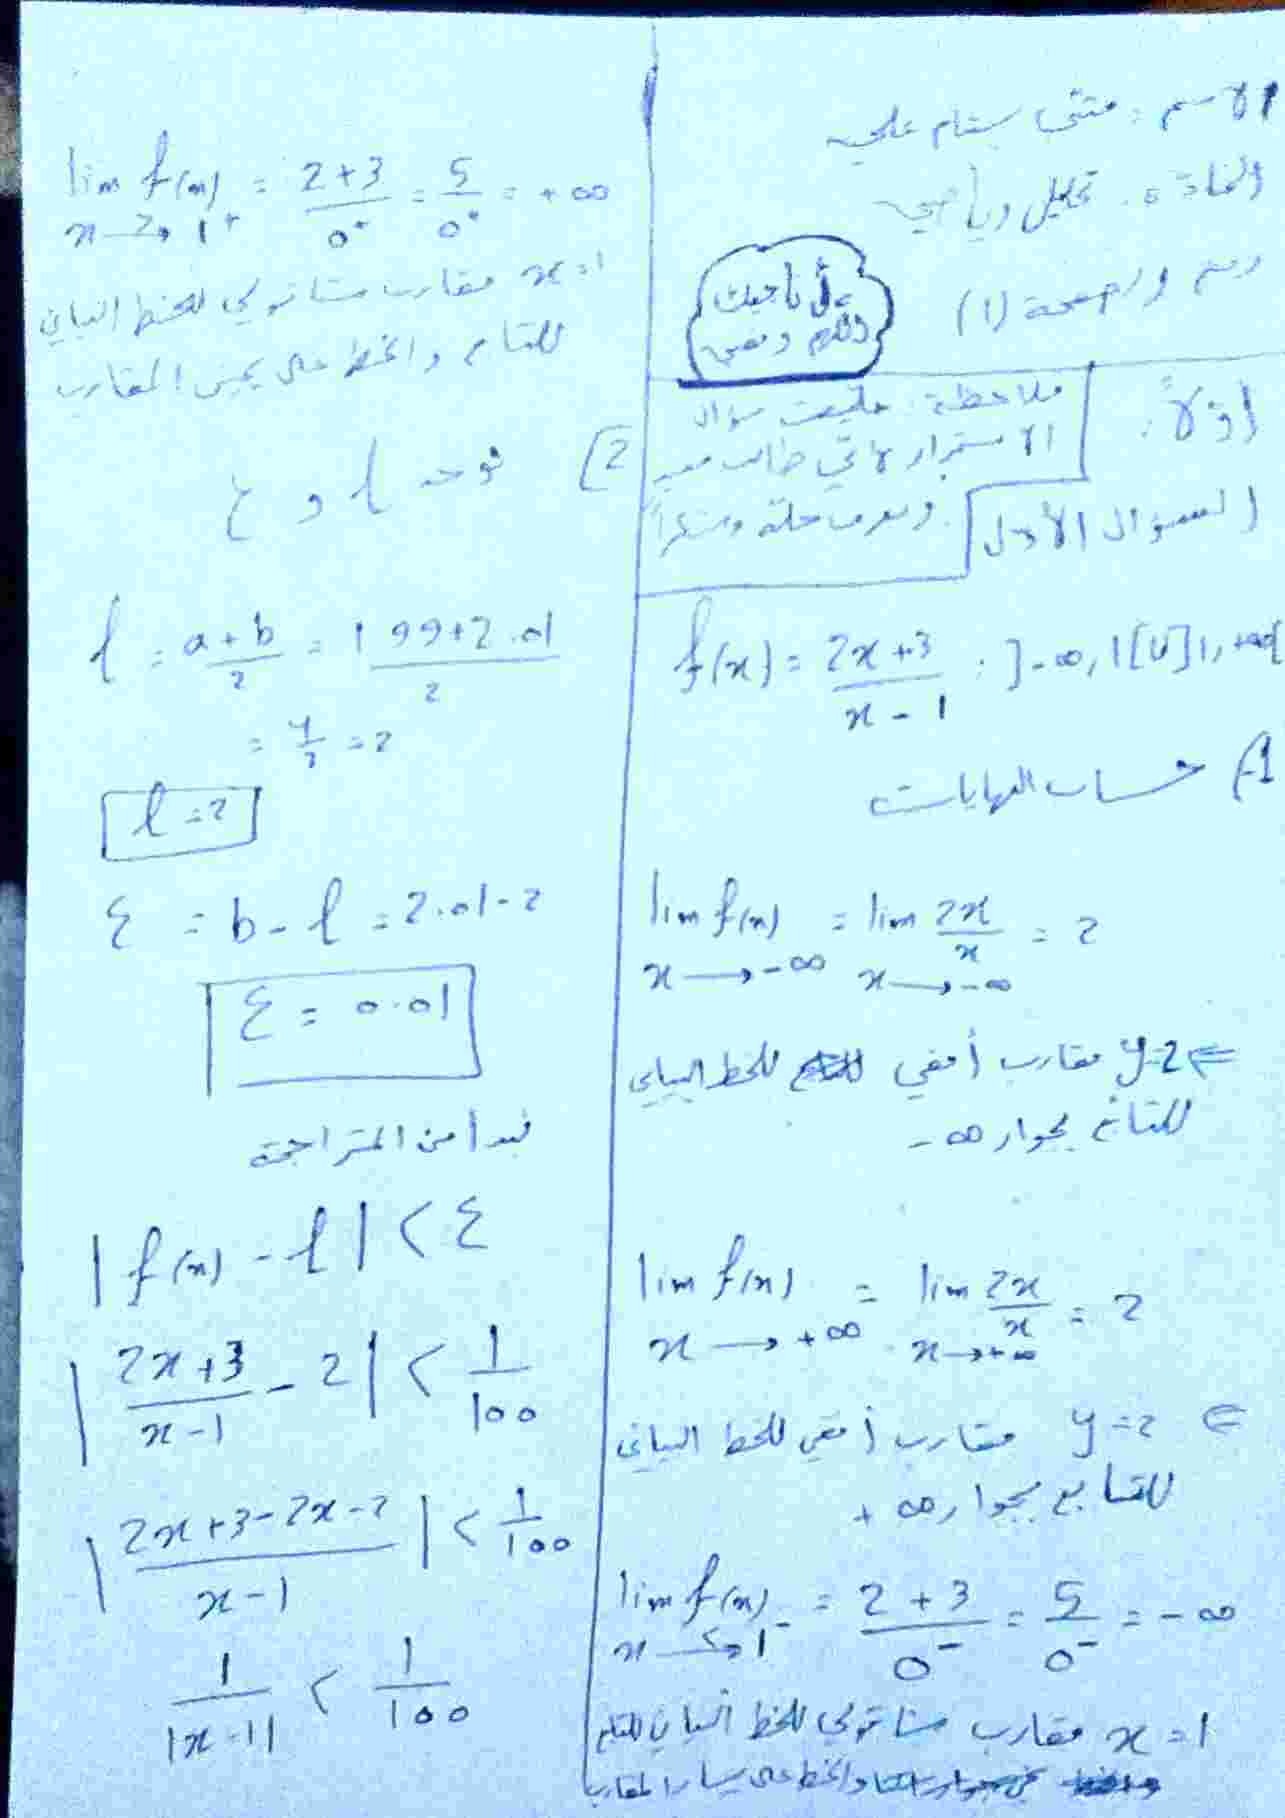 الاسم : مثنى بسام علي
المادة : تحليل رياضي
رقم الصفحة (1)
أولاً :
ملاحظة :
سؤال
الاستمرار
السؤال الأول
f(x) = 2x+3 / x-1 : ]-∞, 1[ U ]1, +∞[
1- حساب النهايات
lim f(x) x→-∞ = lim 2x/x x→-∞ = 2
⇐ y=2 مقارب أفقي للخط البياني
للتابع بجوار ∞-
lim f(x) x→+∞ = lim 2x/x x→+∞ = 2
⇐ y=2 مقارب أفقي للخط البياني
للتابع بجوار ∞+
lim f(x) x→1⁻ = 2+3 / 0⁻ = 5 / 0⁻ = -∞
x=1 مقارب شاقولي للخط البياني للتابع
والخط على يسار المقارب
lim f(x) x→1⁺ = 2+3 / 0⁺ = 5 / 0⁺ = +∞
x=1 مقارب شاقولي للخط البياني
للتابع والخط على يمين المقارب
2] نوجد l و ε
l = a+b / 2 = 1.99+2.01 / 2
= 4/2 = 2
l = 2
ε = b - l = 2.01 - 2
ε = 0.01
نبدأ من المتراجحة
|f(x) - l| < ε
|2x+3 / x-1 - 2| < 1/100
|2x+3-2x-2 / x-1| < 1/100
1 / |x-1| < 1/100